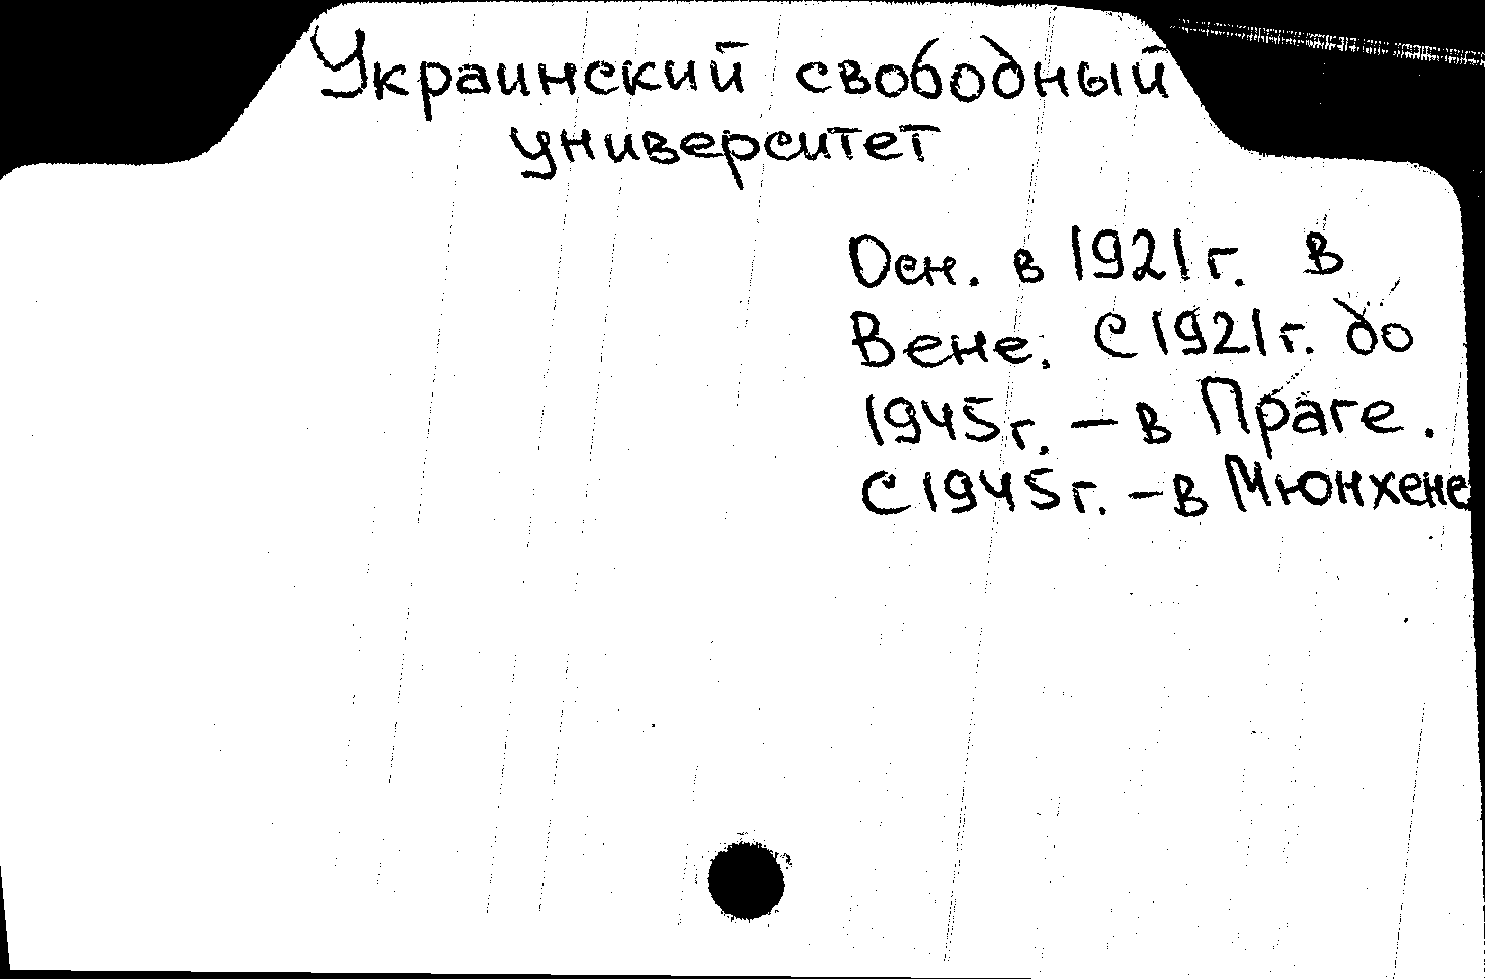 Украинский свободный
университет
Осн. в 1921 г. в
Вене. С 1921 г. до
1945 г. – в Праге.
С 1945 г. – в Мюнхене